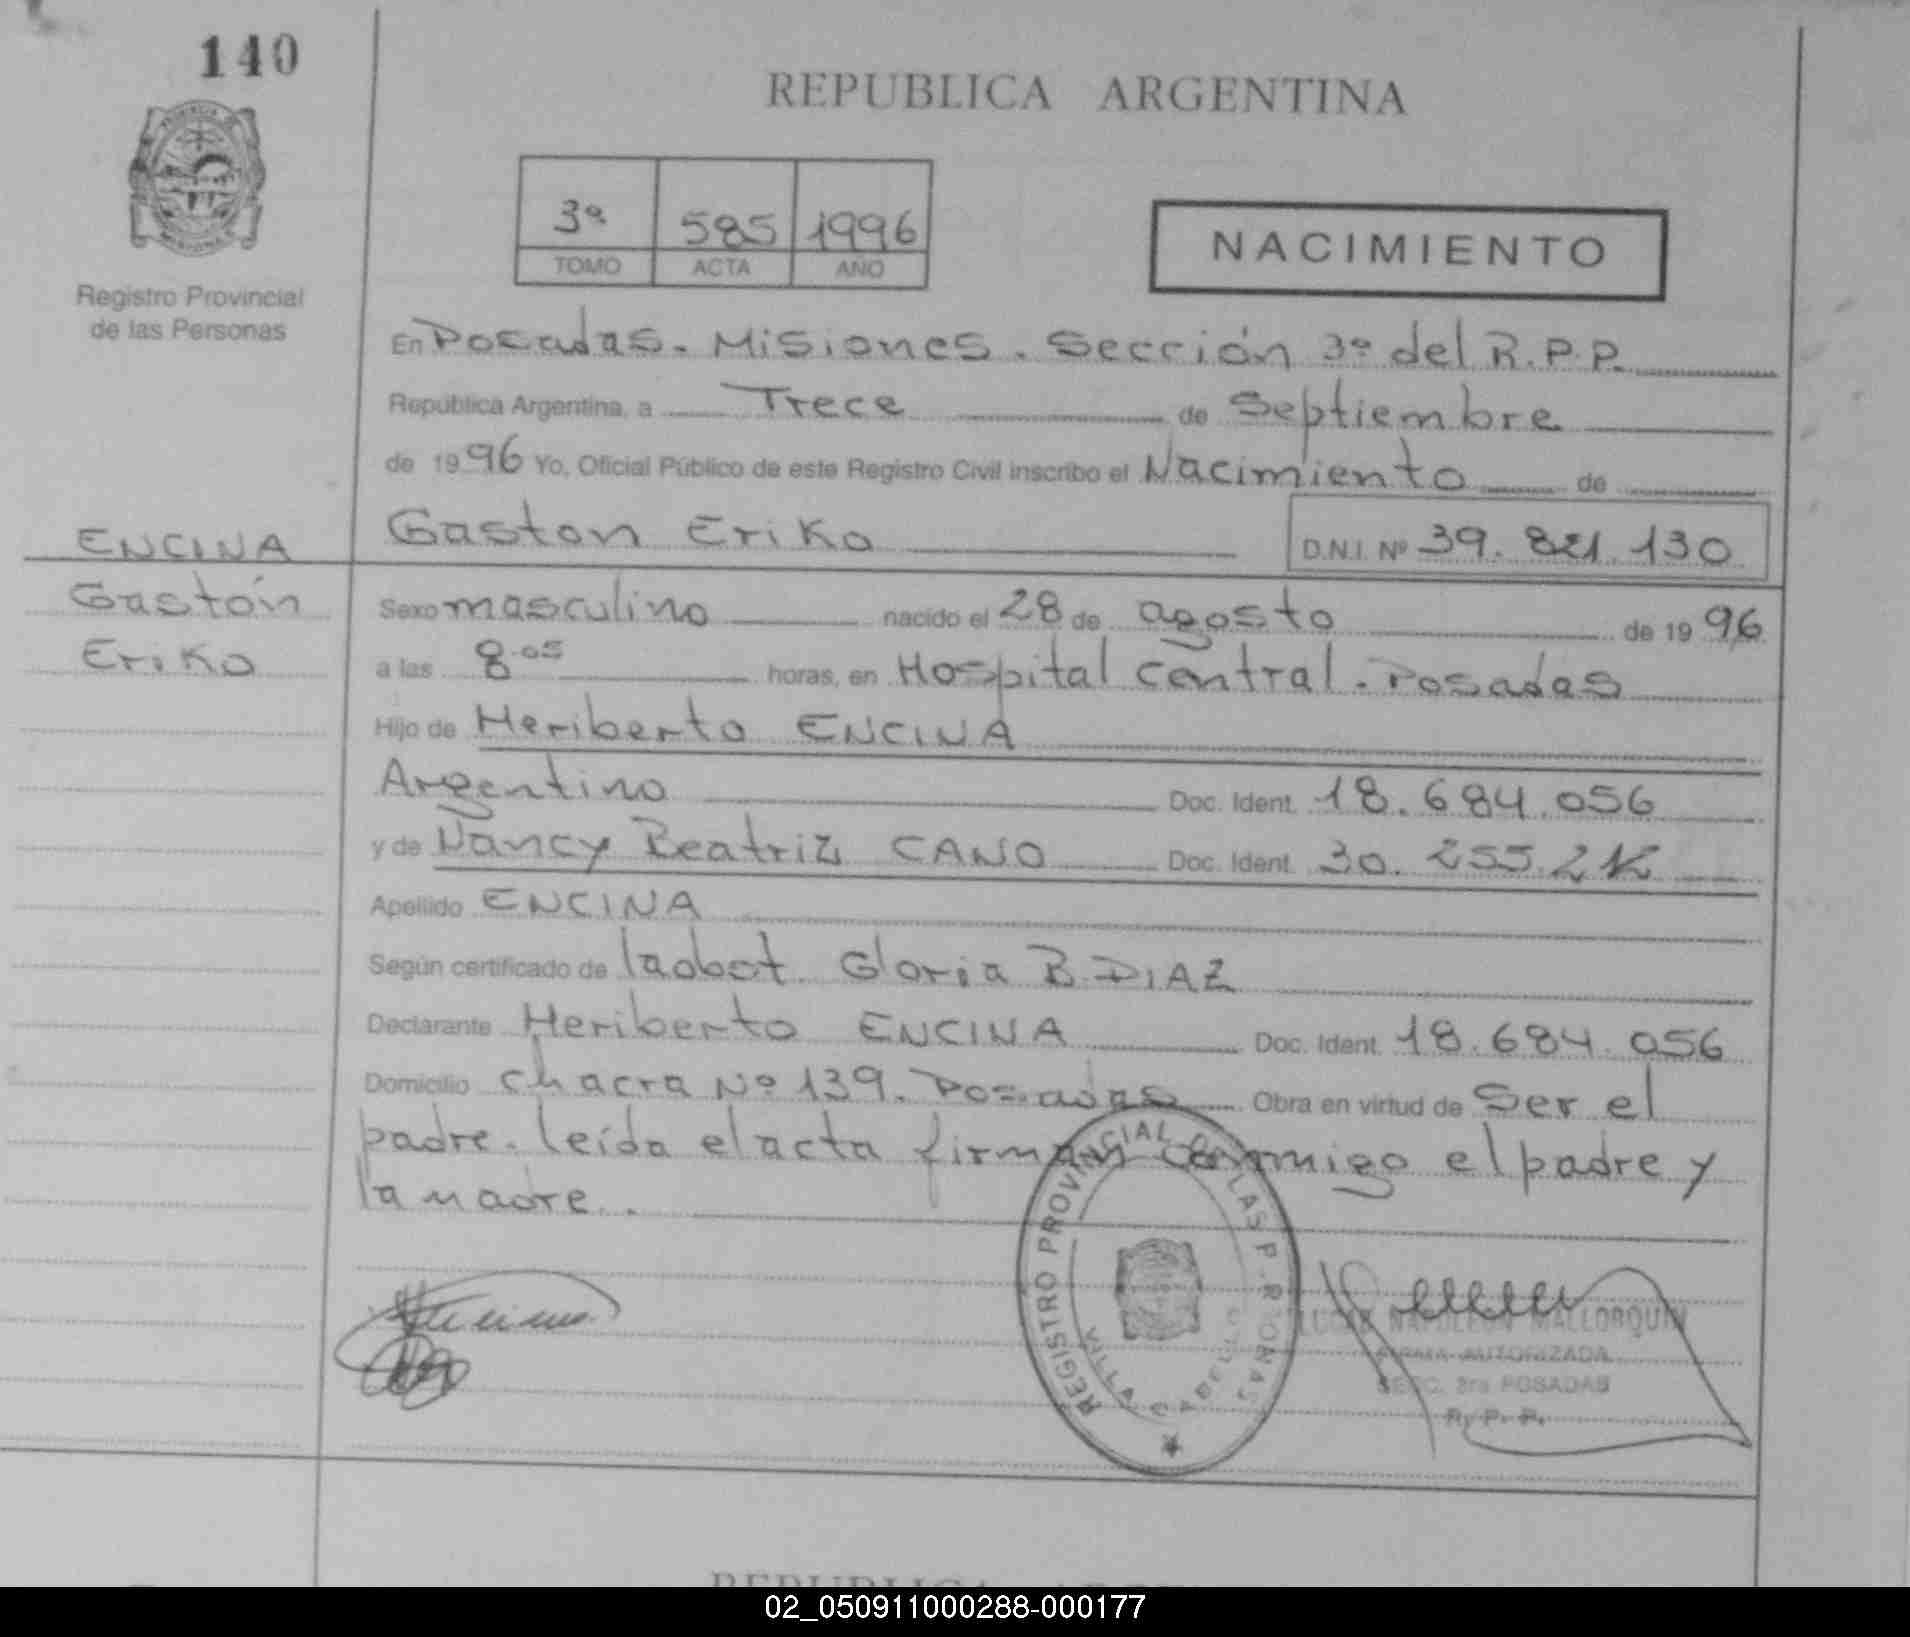 140
REPUBLICA ARGENTINA
3ª 585 1996
TOMO ACTA AÑO
NACIMIENTO
Registro Provincial
de las Personas
En Posadas. Misiones. Sección 3ª del R.P.P.
República Argentina, a Trece de Septiembre
de 1996 Yo, Oficial Público de este Registro Civil inscribo el Nacimiento de
ENCINA
Gaston Eriko D.N.I. Nº 39.821.130
Gastón
Eriko
Sexo masculino nacido el 28 de agosto de 1996
a las 8.05 horas, en Hospital Central. Posadas
Hijo de Heriberto ENCINA
Argentino Doc. Ident. 18.684.056
y de Nancy Beatriz CANO Doc. Ident. 30.255.
Apellido ENCINA
Según certificado de la obst. Gloria B. DIAZ
Declarante Heriberto ENCINA Doc. Ident. 18.684.056
Domicilio Chacra Nº 139. Posadas Obra en virtud de Ser el
padre. leída el acta firman conmigo el padre y
la madre.
REGISTRO PROVINCIAL DE LAS P R ONAS
VILLA CABELLO
NAPOLEON MALLORQUIN
FIRMA AUTORIZADA
SECC. 3ra POSADAS
R. P. P.
REPUBLICA
02_050911000288-000177